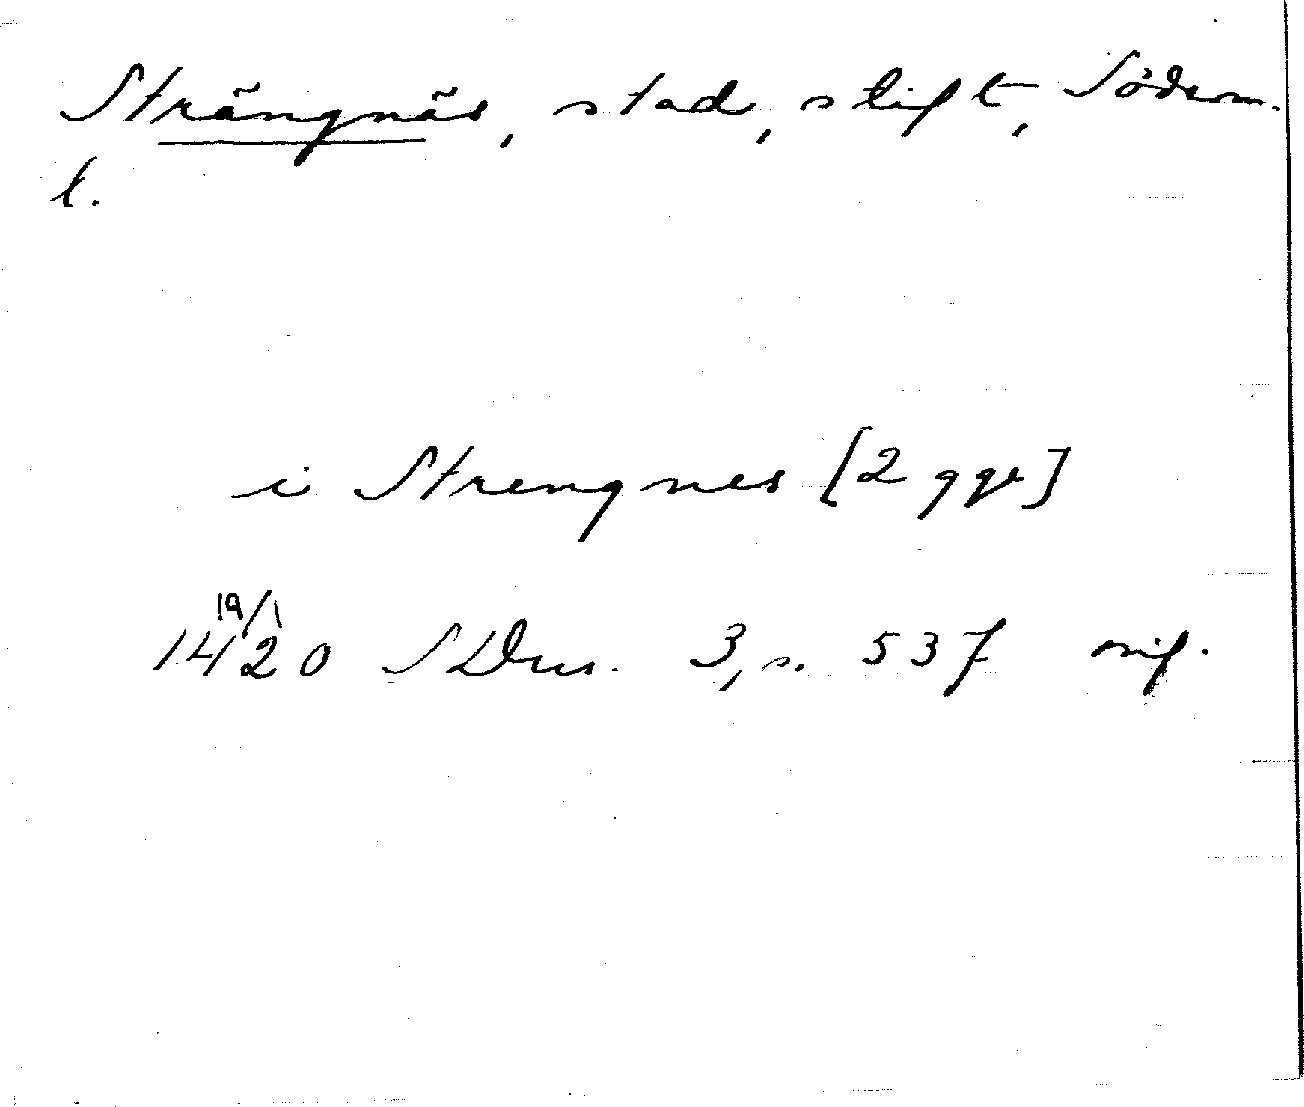 Strängnäs, stad, stift, Söderm.
l.
i Strengnes [2 ggr]
19/1
1420 SDns. 3, s. 537 orig.